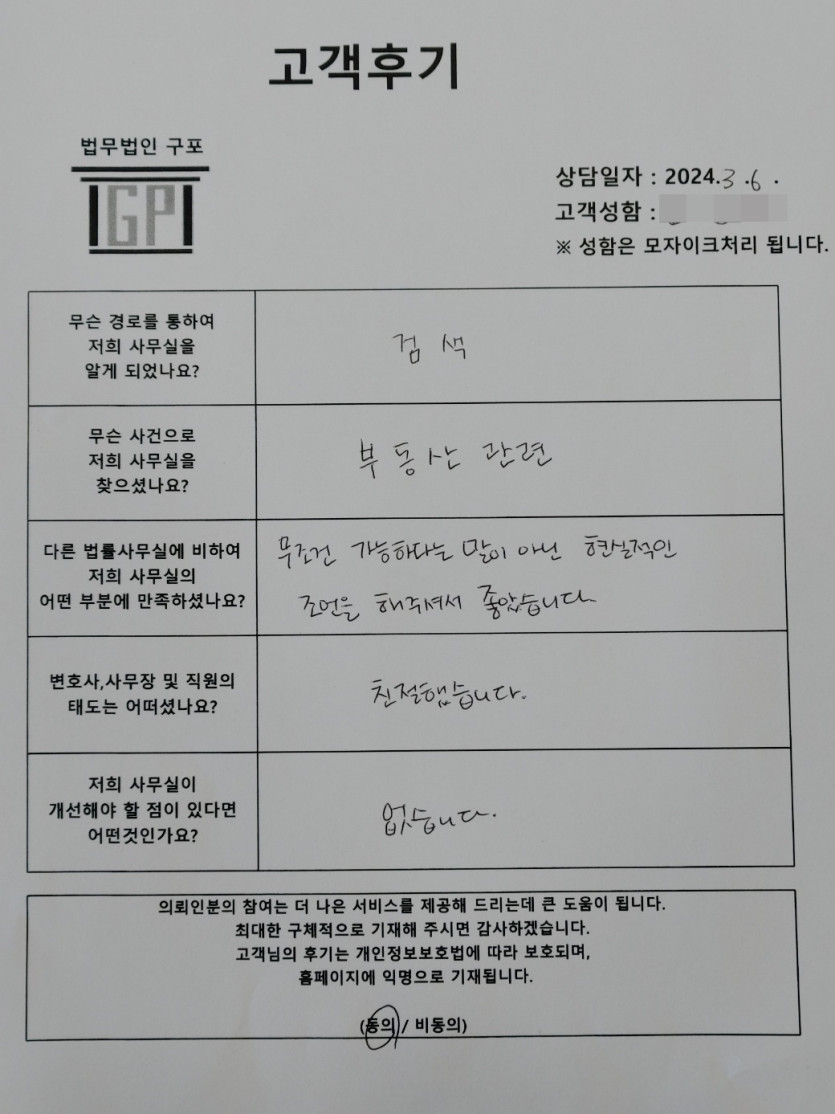 고객후기
법무법인 구포
GP
상담일자 : 2024.3.6.
고객성함 :
※ 성함은 모자이크처리 됩니다.
무슨 경로를 통하여
저희 사무실을
알게 되었나요?
검색
무슨 사건으로
저희 사무실을
찾으셨나요?
부동산 관련
다른 법률사무실에 비하여
저희 사무실의
어떤 부분에 만족하셨나요?
무조건 가능하다는 말이 아닌 현실적인
조언을 해주셔서 좋았습니다
변호사,사무장 및 직원의
태도는 어떠셨나요?
친절했습니다.
저희 사무실이
개선해야 할 점이 있다면
어떤것인가요?
없습니다.
의뢰인분의 참여는 더 나은 서비스를 제공해 드리는데 큰 도움이 됩니다.
최대한 구체적으로 기재해 주시면 감사하겠습니다.
고객님의 후기는 개인정보보호법에 따라 보호되며,
홈페이지에 익명으로 기재됩니다.
(동의 / 비동의)